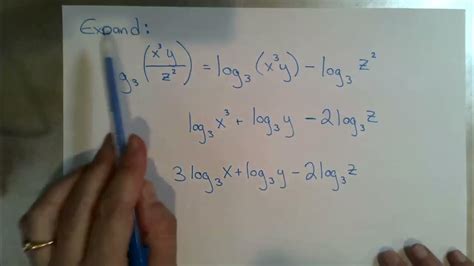 Expand:
g₃(x³y/z²) = log₃(x³y) - log₃z²
log₃x³ + log₃y - 2log₃z
3log₃x + log₃y - 2log₃z